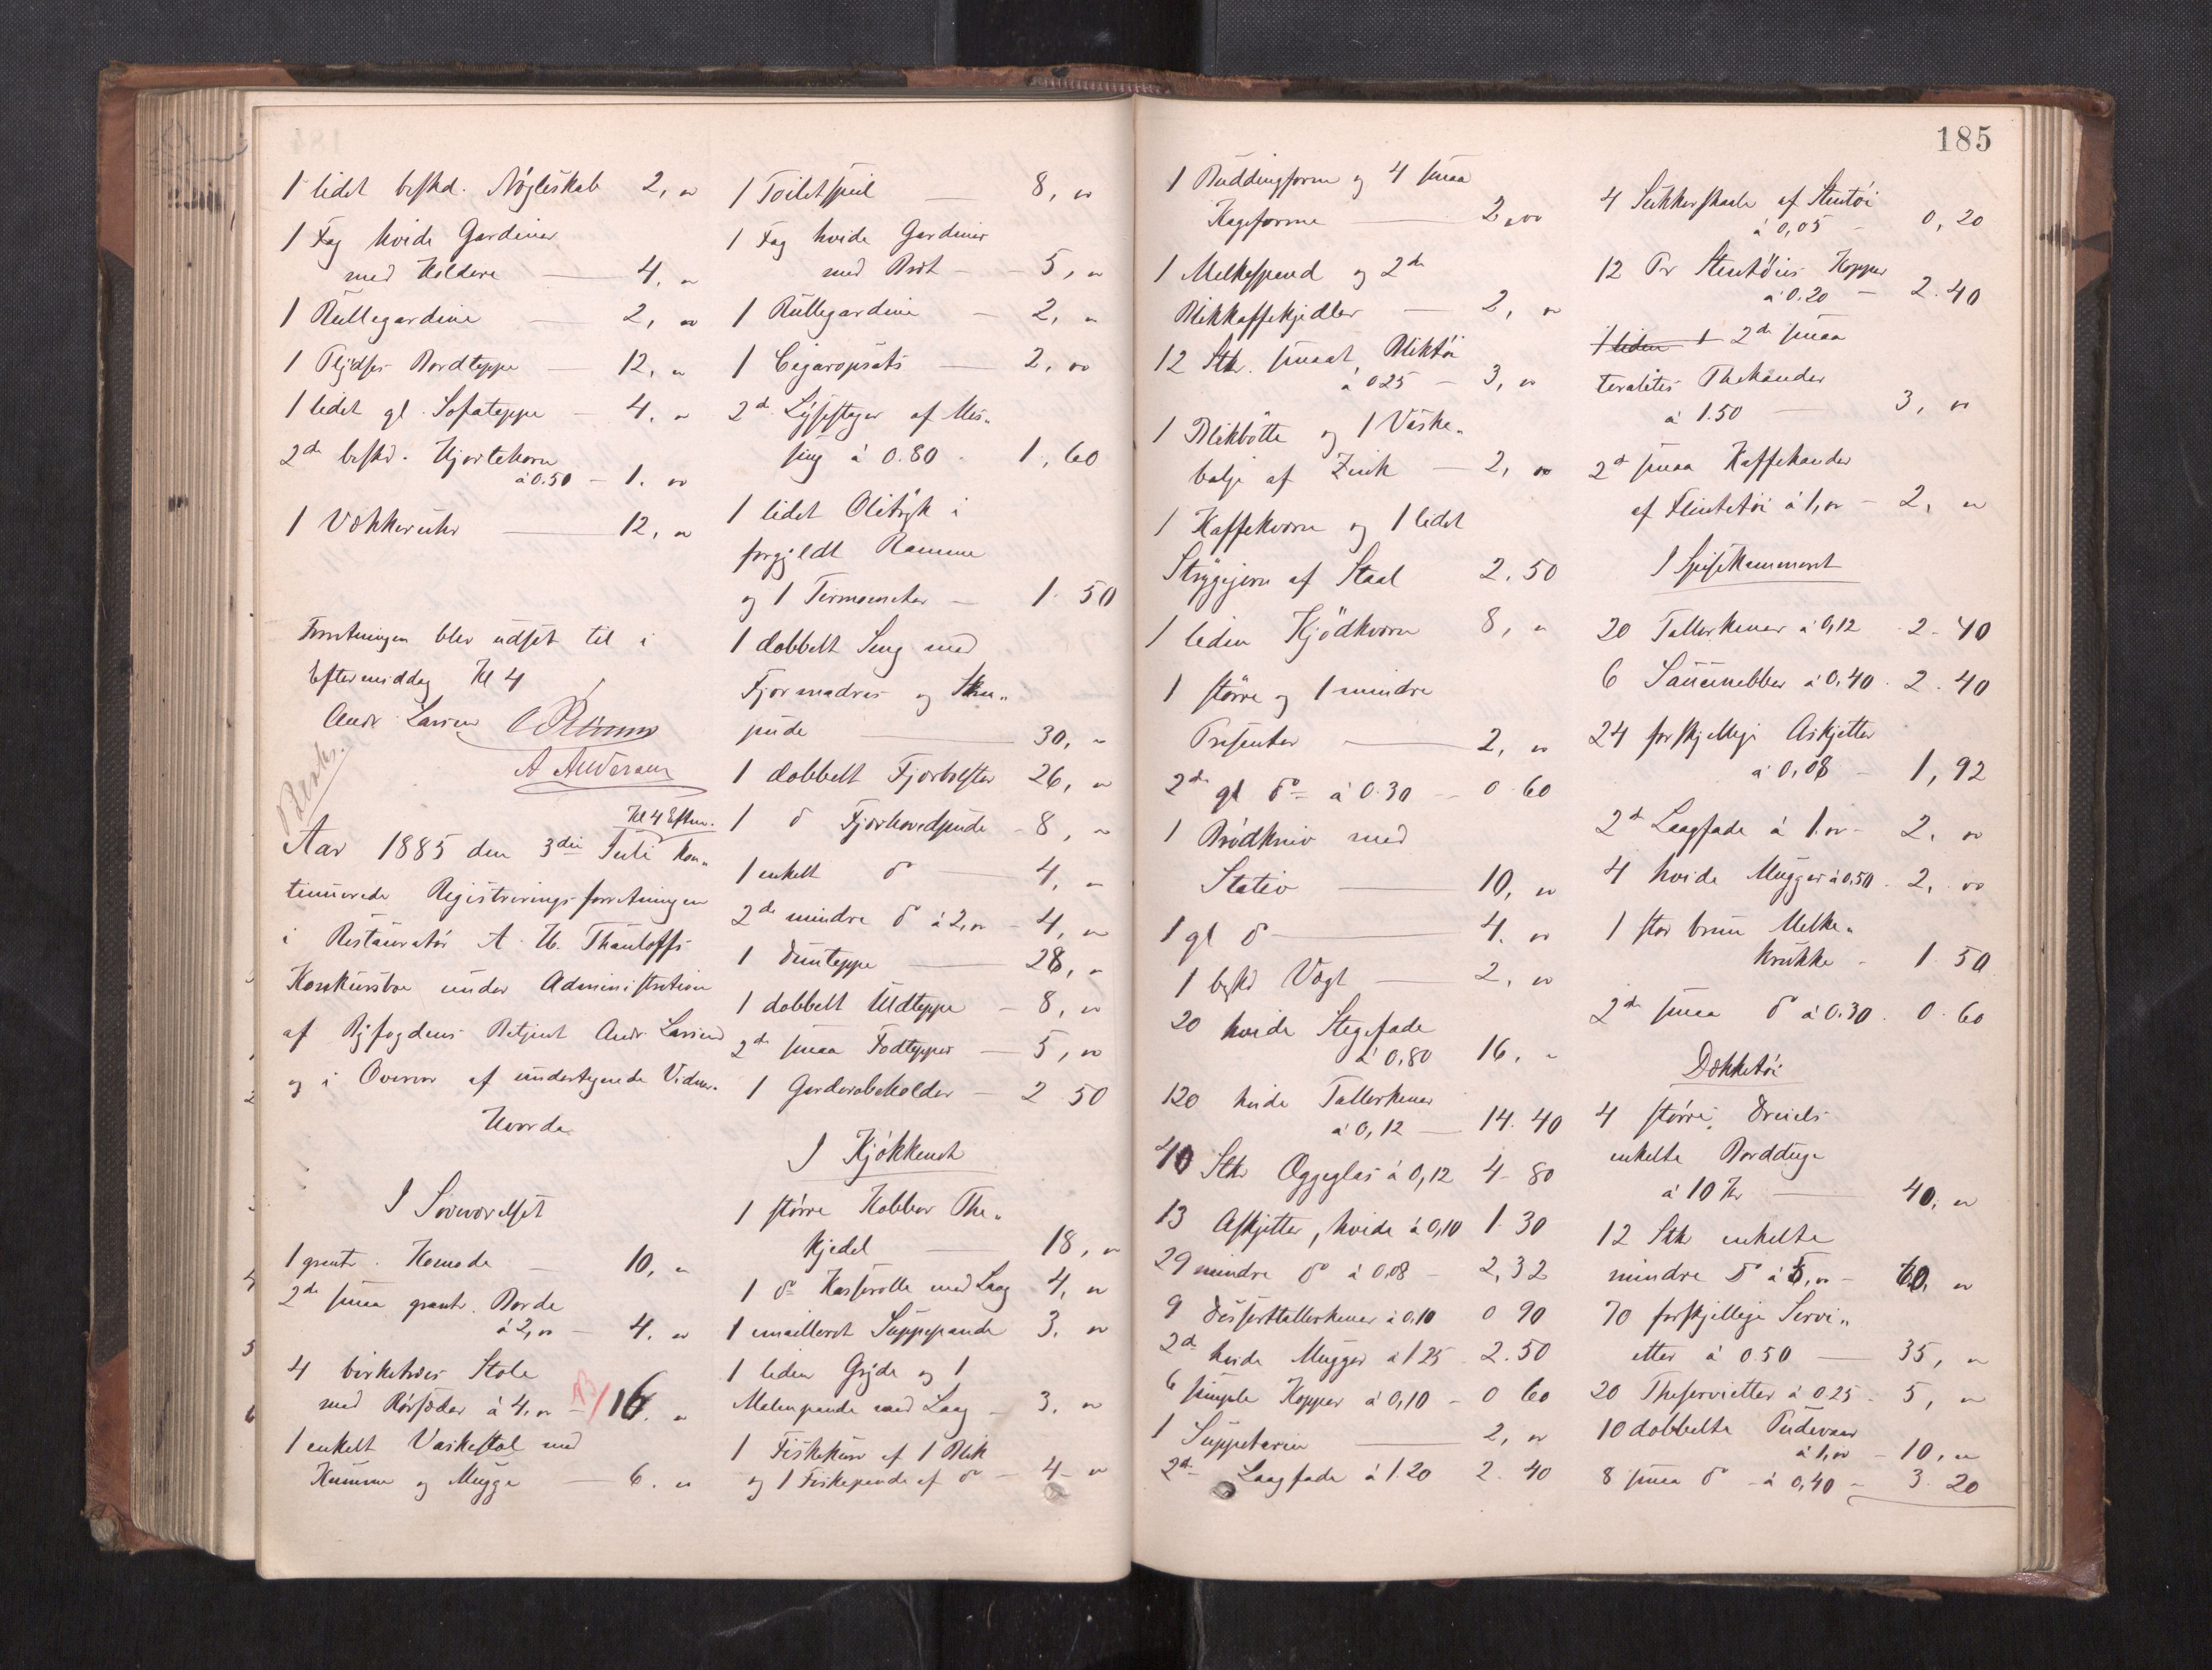 185
1 lidet beskd. Nøgleskab 2, "
1 Fag hvide Gardiner
med Holdere — 4. "
1 Rullegardine — 2, "
1 Plydses Bordteppe — 12, "
1 lidet gl. Sofateppe — 4. "
2de beskd. Hjortehorn
à 0.50 — 1. "
1 Vækkeruhr — 12, "
Forretningen blev udsat til i
Eftermiddag Kl 4
Andr. Larsen
A Andersen
Besk.
Kl 4 Efterm.
Aar 1885 den 3die Juli kon„
tinuerede Registreringsforretningen
i Restauratør A. H. Thauloffs
Konkursbo under Administration
af Byfogdens Betjent Andr. Larsen
og i Overvær af undertegnede Vidner.
Hvorda
I Soveværelset
1 grantr. Komode — 10, "
2de smaa grantr. Borde
à 2, " — 4. "
4 birketræs Stole
med Rørsæder à 4, " — 16. "
1 enkelt Vaskestol med
Kumme og Mugge — 6. "
1 Toiletspeil — 8, "
1 Fag hvide Gardiner
med Bræt — 5, "
1 Rullegardine — 2, "
1 Cigaropsats — 2, "
2de Lysestager af Mes„
sing à 0.80 - 1, 60
1 lidet Olietryk i
forgyldt Ramme
og 1 Termometer — 1. 50
1 dobbelt Seng med
Fjærmadras og
pude — 30, "
1 dobbelt Fjærbolster 26, "
1 do Fjærhovedpude - 8, "
1 enkelt do — 4, "
2de mindre do à 2, " - 4, "
1 Dunteppe — 28, "
1 dobbelt Uldteppe - 8, "
2de smaa Fodtepper — 5, "
1 Garderobeholder — 2 50
I Kjøkkenet
1 større Kobber The„
kjedel — 18, "
1 do Kasserolle med Laag 4, "
1 emailleret Suppepande 3. "
1 liden Gryde og 1
Melkepande med Laag - 3. "
1 Fiskekum af 1 Blik
og 1 Fiskepande af do — 4 - "
1 Puddingform og 4 smaa
Kageforme — 2, "
1 Melkespand og 2de
Blikkaffekjedler — 2, "
12 Stk. smaat Bliktøi
à 025 — 3, "
1 Blikbøtte og 1 Vaske„
balje af Zink — 2, "
1 Kaffekværn og 1 lidet
Strygejern af Staal 2.50
1 liden Kjødkværn 8, "
1 større og 1 mindre
Presenter — 2, "
2de gl do à 0.30 — 0.60
1 Brødkniv med
Stativ — 10, "
1 gl do — 4. "
1 beskd Vægt — 2, "
20 hvide Stegefade
à 0,80 16. "
120 hvide Tallerkener
à 0,12 — 14.40
40 Stk Æggeglas à 0,12 4 - 80
13 Askjetter, hvide à 0,10 1.30
29 mindre do à 0,08 - 2,32
9 Desserttallerkener à 0,10 0 90
2de hvide Mugger à 1 25 - 2.50
6 simple Kopper à 0,10 - 0 60
1 Suppeterin — 2, "
2de Laagfade à 1.20 2. 40
4 Sukkerskaale af Stentøi
à 0,05 - 0, 20
12 Par Stentøies Kopper
à 0.20 — 2.40
1 liden 1 2de smaa
teralites Thekander
à 1.50 — 3, "
2de smaa Kaffekander
af Flintetøi à 1, " — 2, "
I Spisekammeret
20 Tallerkener à 0,12 - 2 - 40
6 Sausenebber à 0,40 - 2. 40
24 forskjellige Askjetter
à 0,08 — 1, 92
2de Laagfade à 1. " - 2. "
4 hvide Mugger à 0,50 - 2. "
1 stor brun Melke„
krukke - 1. 50
2de smaa do à 0.30 - 0. 60
Dækketøi
4 større Dreiels
enkelte Bordduge
à 10 Kr — 40. "
12 Stk enkelte
mindre do à 5, " — 60, "
70 forskjellige Servi„
etter à 0.50 — 35, "
20 Theservietter à 0.25 - 5, "
10 dobbelte Pudevaar
à 1, " — 10, "
8 smaa do - à 0,40 - 3. 20